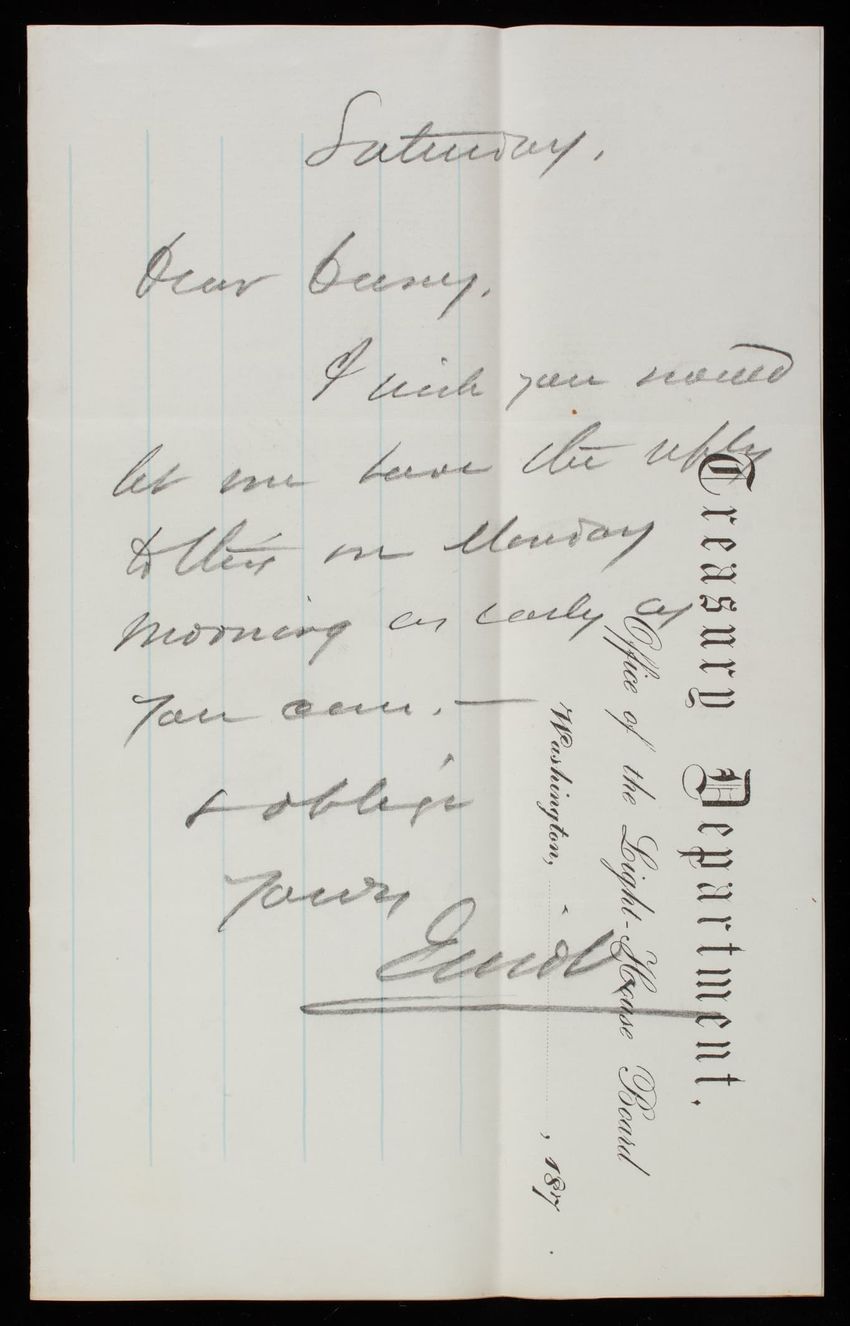 Saturday.
Dear Casey,
I wish you would
let me have the reply
to this on Monday
morning as early as
you can. —
& oblige
Yours
Treasury Department.
Office of the Light-House Board
Washington, , 187 .